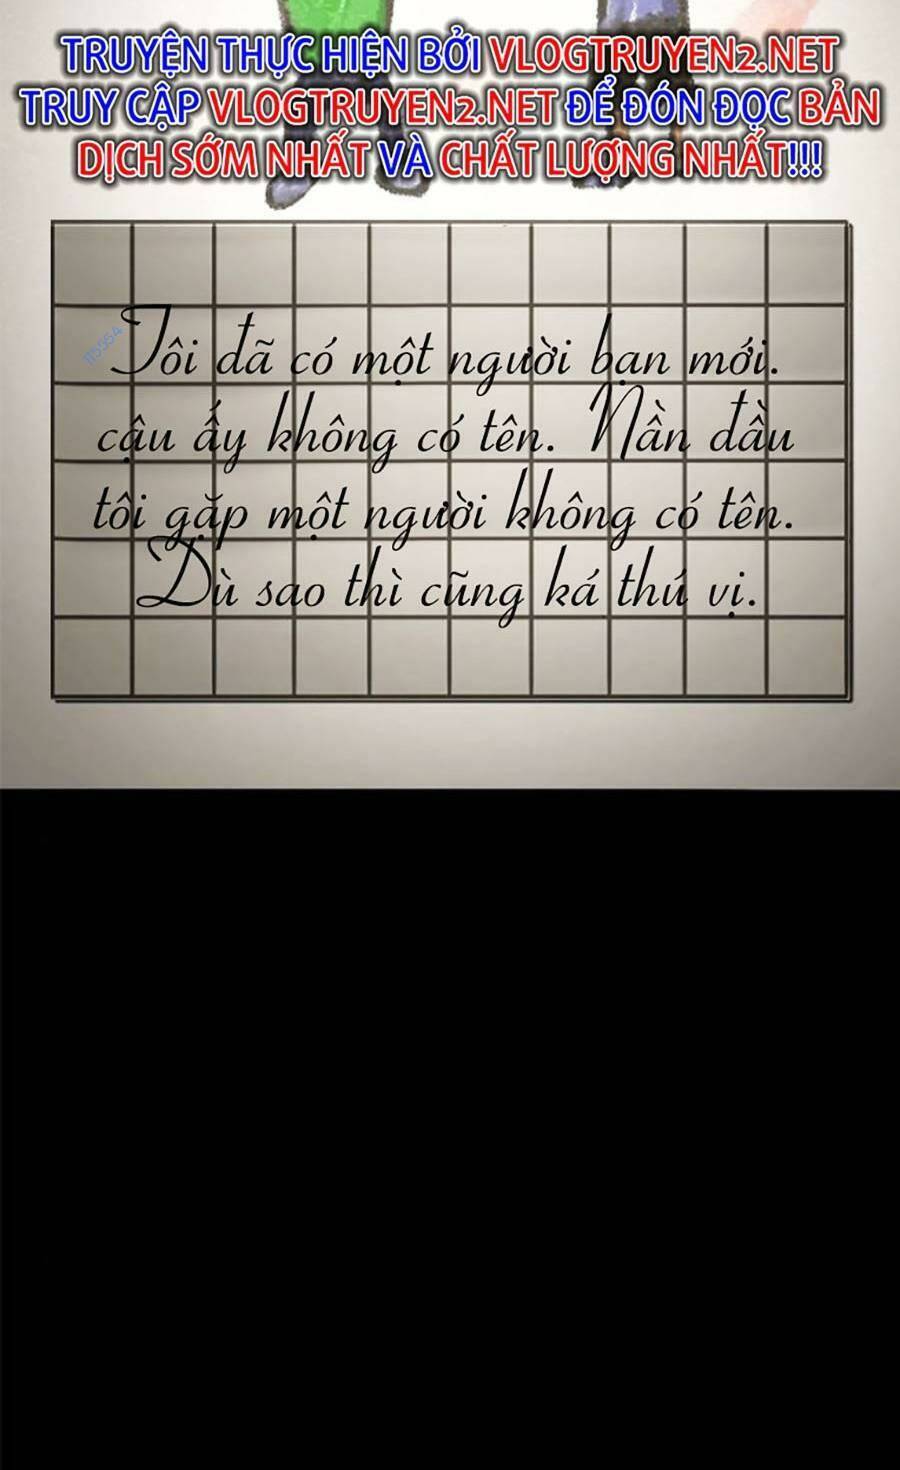 TRUYỆN THỰC HIỆN BỞI VLOGTRUYEN2.NET
TRUY CẬP VLOGTRUYEN2.NET ĐỂ ĐÓN ĐỌC BẢN
DỊCH SỚM NHẤT VÀ CHẤT LƯỢNG NHẤT!!!
115554
Tôi đã có một người bạn mới.
cậu ấy không có tên. Nần đầu
tôi gặp một người không có tên.
Dù sao thì cũng ká thú vị.